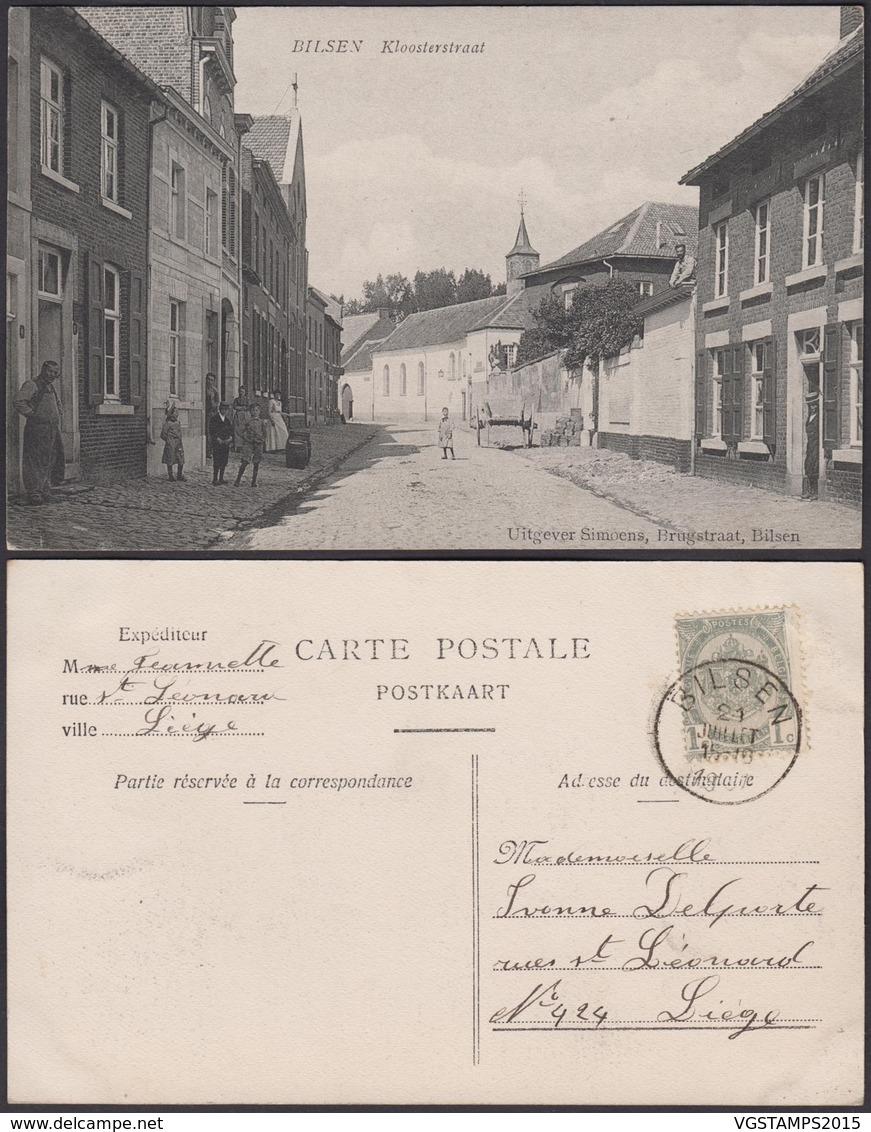 BILSEN Kloosterstraat
Uitgever Simoens, Brugstraat, Bilsen
Expéditeur
Mme Jeannette
rue St Léonard
ville Liége
CARTE POSTALE
POSTKAART
Partie réservée à la correspondance
Adresse du destinataire
POSTES
1c 1c
BILSEN
21
JUILLET
Mademoiselle
Yvonne Delporte
rues St Léonard
No 424 Liége
VGSTAMPS2015